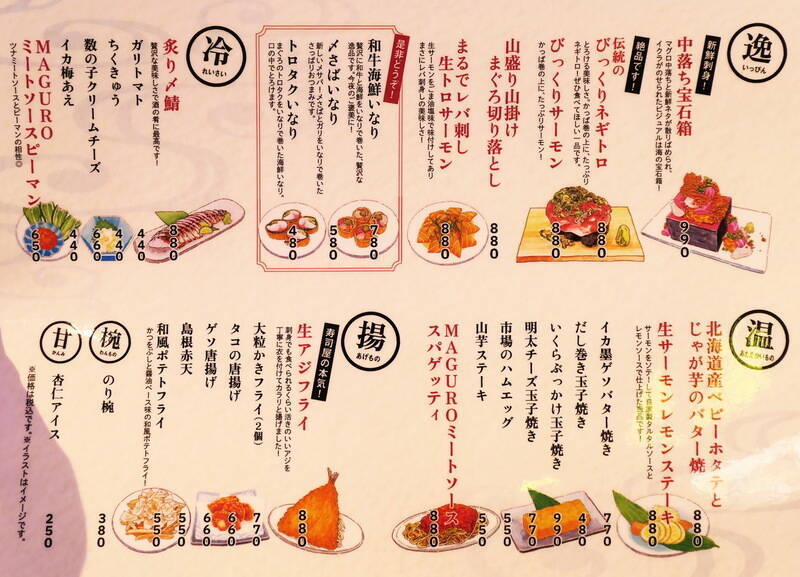 逸
いっぴん
新鮮刺身!
中落ち宝石箱
マグロ中落ちと新鮮ネタが散りばめられ、
イクラがのせられたビジュアルは海の宝石箱!
990
絶品です!
伝統の
びっくりネギトロ
とろける美味しさ。かっぱ巻の上に、たっぷり
ネギトロ!ぜひ食べてほしい一品です。
880
びっくりサーモン
かっぱ巻の上に、たっぷりサーモン!
880
山盛り山掛け
まぐろ切り落とし
880
まるでレバ刺し
生トロサーモン
生サーモンをごま油塩味で味付けしてあり
まさにレバ刺身しの美味しさ!
880
是非どうぞ!
和牛海鮮いなり
贅沢に和牛と海鮮をいなりで巻いた、贅沢な
逸品です。今夜のご褒美に!
780
〆さばいなり
新しい〆サバ!〆さばとガリをいなりで巻いた
さっぱりおつまみです。
580
トロタクいなり
まぐろのトロタクをいなりで巻いた海鮮いなり。
口の中でとろけます。
480
冷
れいさい
炙り〆鯖
贅沢な美味しさで酒の肴に最高です!
880
ガリトマト
440
ちくきゅう
440
数の子クリームチーズ
660
イカ梅あえ
440
MAGURO
ミートソースピーマン
ツナミートソースとピーマンの相性◎
650
温
あたたかいもの
北海道産ベビーホタテと
じゃが芋のバター焼
880
生サーモンレモンステーキ
サーモンをソテーして自家製タルタルソースと
レモンソースで仕上げた逸品です!
880
イカ墨ゲソバター焼き
770
だし巻き玉子焼き
480
いくらぶっかけ玉子焼き
990
明太チーズ玉子焼き
770
市場のハムエッグ
550
山芋ステーキ
550
MAGUROミートソース
スパゲッティ
880
揚
あげもの
寿司屋の本気!
生アジフライ
刺身でも食べられるくらい活きのいいアジを
丁寧に衣を付けてカラリと揚げました!
880
大粒かきフライ(2個)
770
タコの唐揚げ
660
ゲソ唐揚げ
660
島根赤天
550
和風ポテトフライ
かつをぶしと醤油ベース味の和風ポテトフライ!
550
椀
わんもの
のり椀
380
甘
かんみ
杏仁アイス
250
※価格は税込です。※イラストはイメージです。